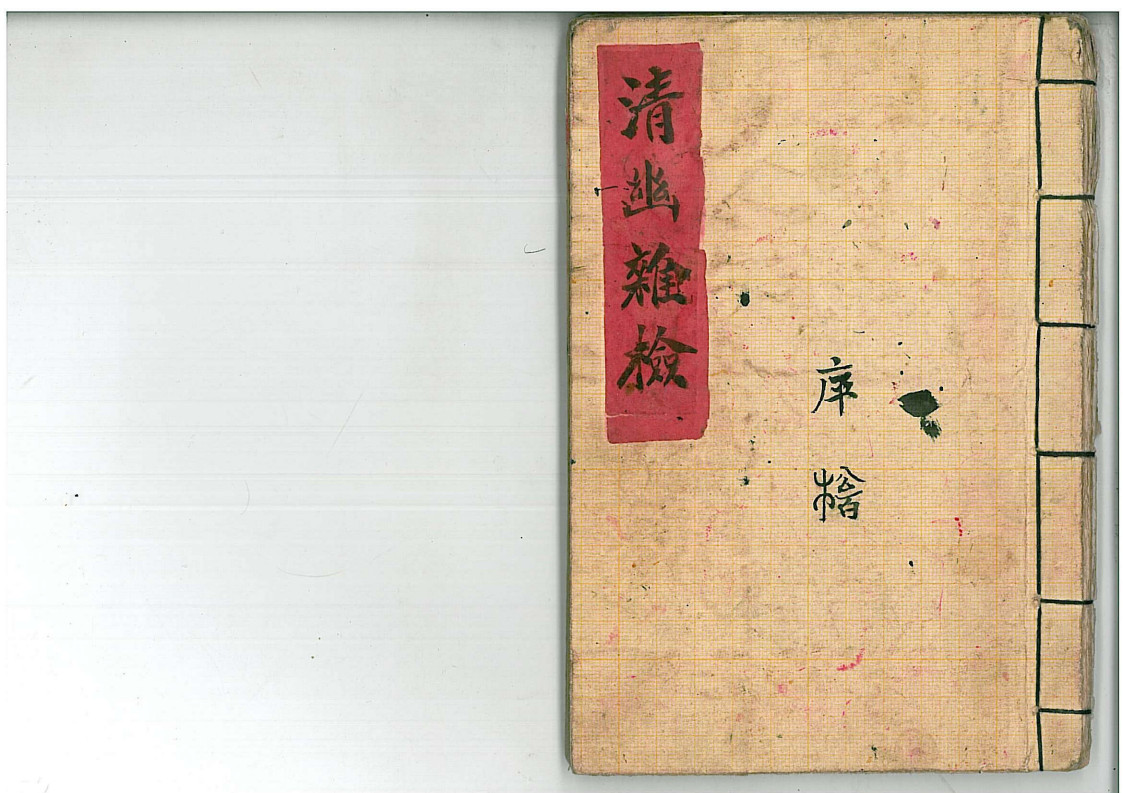 清幽雜檢
序楷